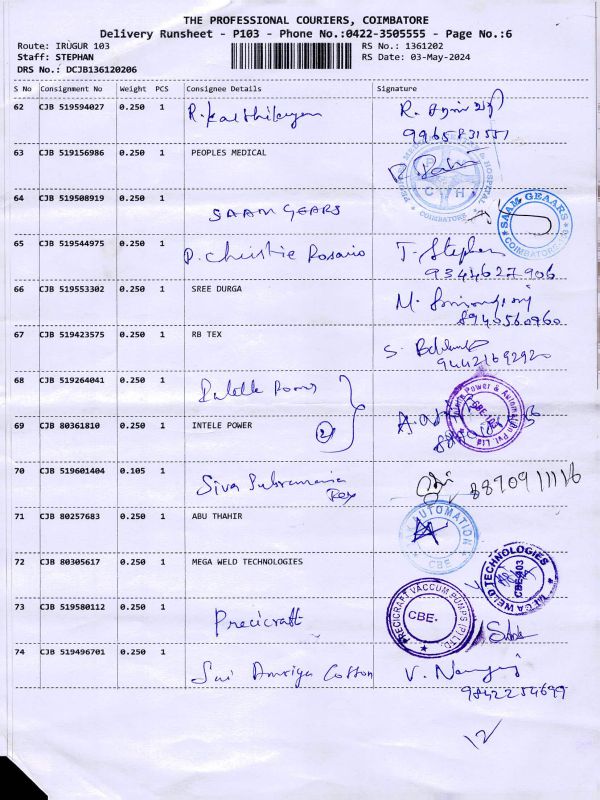 THE PROFESSIONAL COURIERS, COIMBATORE
Delivery Runsheet - P103 - Phone No.:0422-3505555 - Page No.:6
Route: IRUGUR 103
RS No.: 1361202
Staff: STEPHAN
RS Date: 03-May-2024
DRS No.: DCJB136120206
S No Consignment No Weight PCS Consignee Details Signature
62 CJB 519594027 0.250 1 R. R.
9965831551
63 CJB 519156986 0.250 1 PEOPLES MEDICAL
COIMBATORE
64 CJB 519508919 0.250 1 SAAM GEARS SAAM GEAARS
COIMBATORE
65 CJB 519544975 0.250 1 P. Christie Rosario T. Stephen
9344627906
66 CJB 519553302 0.250 1 SREE DURGA M.
8940560960
67 CJB 519423575 0.250 1 RB TEX S.
9442169292
68 CJB 519264041 0.250 1 Power & Automation Pvt. Ltd
CBE
69 CJB 80361810 0.250 1 INTELE POWER 2
70 CJB 519601404 0.105 1 Siva Subramania
Tex
8870911116
71 CJB 80257683 0.250 1 ABU THAHIR AUTOMATION
CBE
72 CJB 80305617 0.250 1 MEGA WELD TECHNOLOGIES MEGA WELD TECHNOLOGIES
73 CJB 519580112 0.250 1 Precicraft PRECICRAFT VACCUM PUMPS (P) LTD.
CBE.
74 CJB 519496701 0.250 1 Sai Cotton V.
9842254699
12